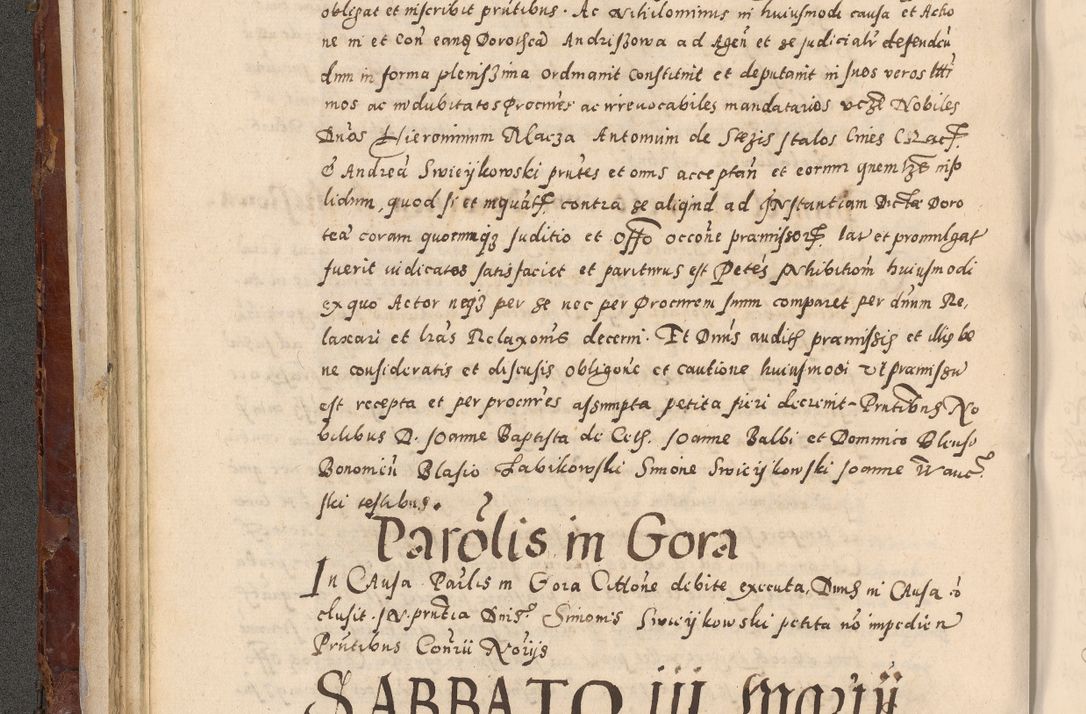 obligat et inscribit prntibus. Ac Nihilominus in huiusmodi causa et Actio
ne in et Con eand Dorothea Andriszowa ad Agen et se judicialr defenden
dum in forma plenissima ordinavit Constituit et deputavit in suos veros
mos ac indubitatos Procures ac irrevocabiles mandatarios Nobiles
Dnos Hieronimum Macza Antonium de Stezis Italos Cives
& Andrea Swieijkowski prntes et onus acceptan et eorum quem
lidum, quod si et contra se aliqnd ad Instantiam Dictae Doro
tea coram quocunqz Juditio et Offo occone praemissor. lat et promulgat
fuerit iudicatos satisfaciet et pariturus est Petes Nhibitiom huiusmodi
ex quo Actor neqz per se nec per Procurem suum comparet per dnum Re,
laxari et lras Relaxonis decerni. Et Dnus audit praemissis et illis be
ne consideratis et discusis obligone et cautione huiusmodi vt praemissu
est recepta et per procures assumpta petita fieri decrevit Prntibus No
bilibus D. Joanne Baptista de Ceth. Joanne Balbi et Dominico
Bononien Blasio Labikowski Simone Swieijkowski Joanne
ski testibus.
Parolis in Gora
In Causa Parlis in Gora Citatone debite executa, Dnus in Causa
clusit. In prntia Dnis Simonis Swieijkowski petita no impedien
Prntibus Conrii Norijs
SABBATO III Maij